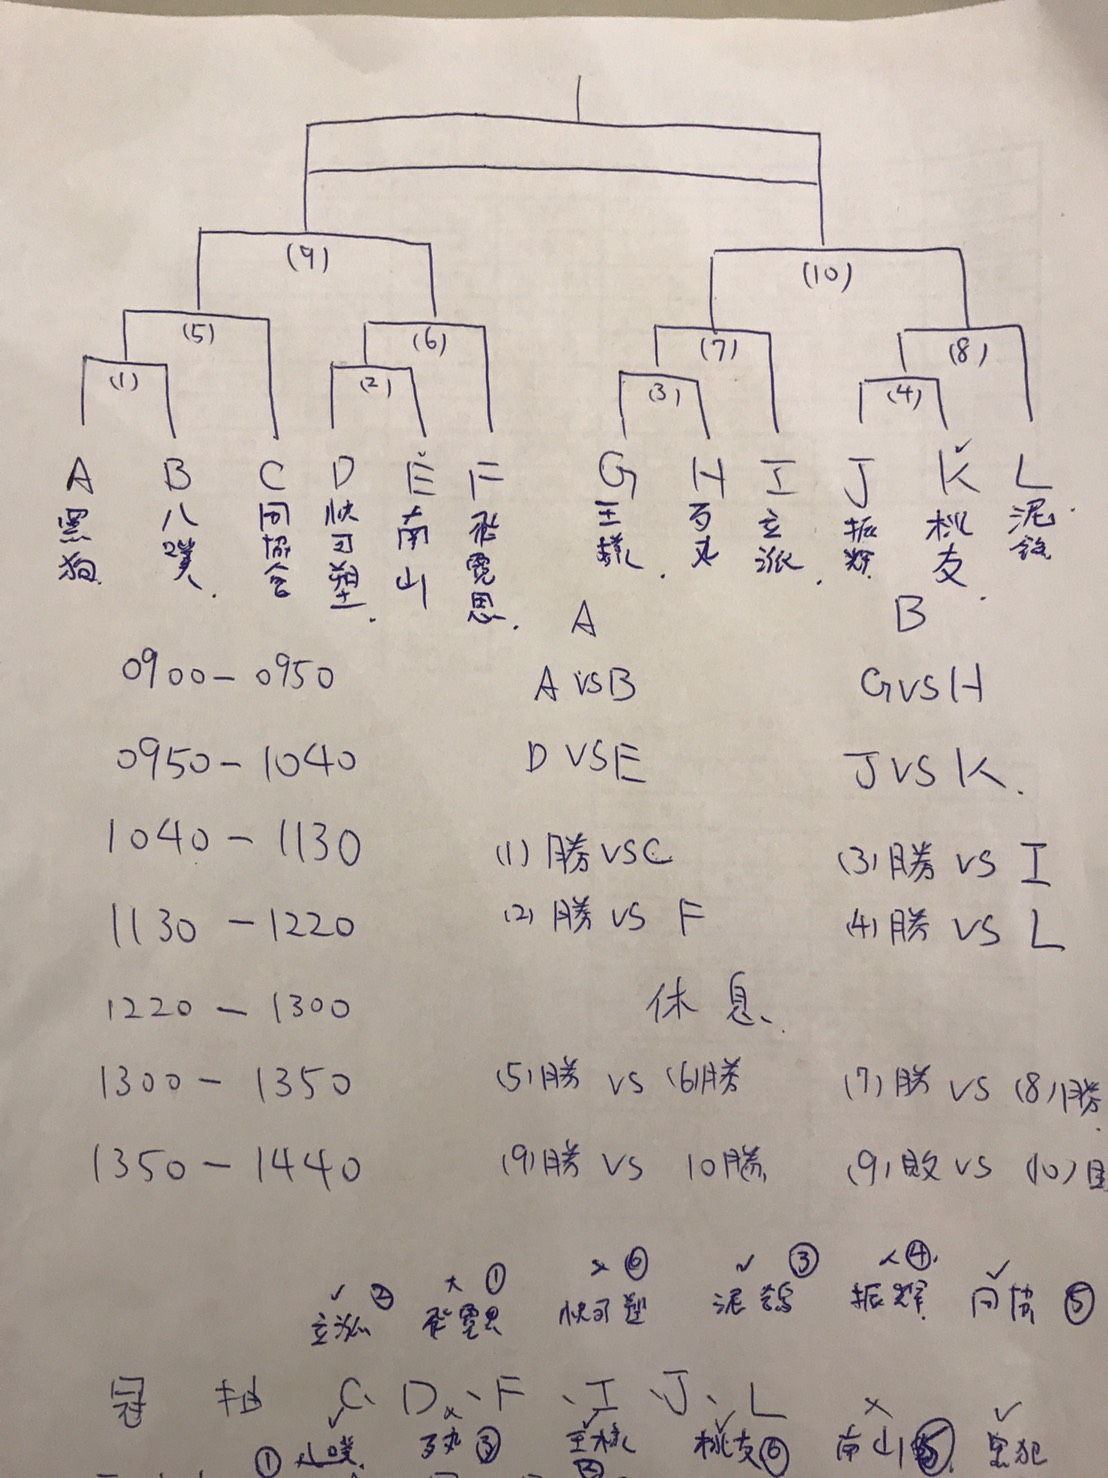 (9) (10)
(5) (6) (7) (8)
(1) (2) (3) (4)
A B C D E F G H I J K L
黑狗 八噗 同協會 快可塑 南山 飛霓思 王樣 丂丸 立派 振輝 桃友 泥鴿
A B
0900-0950 A vs B G vs H
0950-1040 D VS E J VS K.
1040-1130 (1)勝 VS C (3)勝 vs I
1130-1220 (2)勝 vs F (4)勝 vs L
1220-1300 休息
1300-1350 (5)勝 vs (6)勝 (7)勝 vs (8)勝
1350-1440 (9)勝 vs 10勝 (9)敗 vs (10)
✓ ② × ① × ⑥ ✓ ③ × ④ ✓
立派 飛霓思 快可塑 泥鴿 振輝 同協 ⑤
冠 抽 C、D、F、I、J、L
✓ × ✓ ✓ × ✓
① 八噗 丂丸 ③ 王樣 桃友 ⑥ 南山 ⑤ 黑犯
②